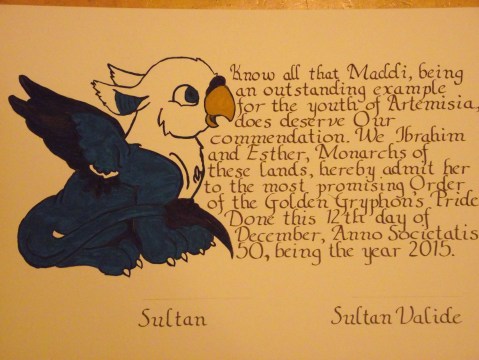 Know all that Maddi, being
an outstanding example
for the youth of Artemisia,
does deserve Our
commendation. We Ibrahim
and Esther, Monarchs of
these lands, hereby admit her
to the most promising Order
of the Golden Gryphon's Pride
Done this 12th day of
December, Anno Societatis
50, being the year 2015.
Sultan
Sultan Valide